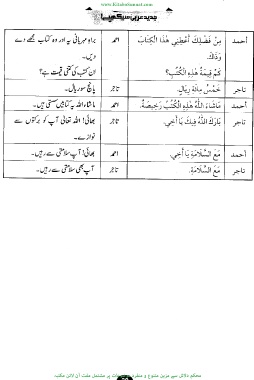 www.KitaboSunnat.com
جدید عربی سیکھیں
أحمد مِنْ فَضْلِكَ أَعْطِنِي هٰذَا الْكِتَابَ احمد براہ مہربانی یہ اور وہ کتاب مجھے دے
وَذَاكَ. دیں۔
كَمْ قِيْمَةُ هٰذِهِ الْكُتُبِ؟ ان کتب کی کتنی قیمت ہے؟
تاجر خَمْسُ مِائَةِ رِيَالٍ. تاجر پانچ سو ریال۔
أحمد مَاشَاءَ اللّٰهُ هٰذِهِ الْكُتُبُ رَخِيْصَةٌ. احمد ماشاء اللہ یہ کتابیں سستی ہیں۔
تاجر بَارَكَ اللّٰهُ فِيْكَ يَا أَخِي. تاجر بھائی! اللہ تعالیٰ آپ کو برکتوں سے
نوازے۔
أحمد مَعَ السَّلَامَةِ يَا أَخِي. احمد بھائی! آپ سلامتی سے رہیں۔
تاجر مَعَ السَّلَامَةِ. تاجر آپ بھی سلامتی سے رہیں۔
محکم دلائل سے مزین متنوع و منفرد موضوعات پر مشتمل مفت آن لائن مکتبہ